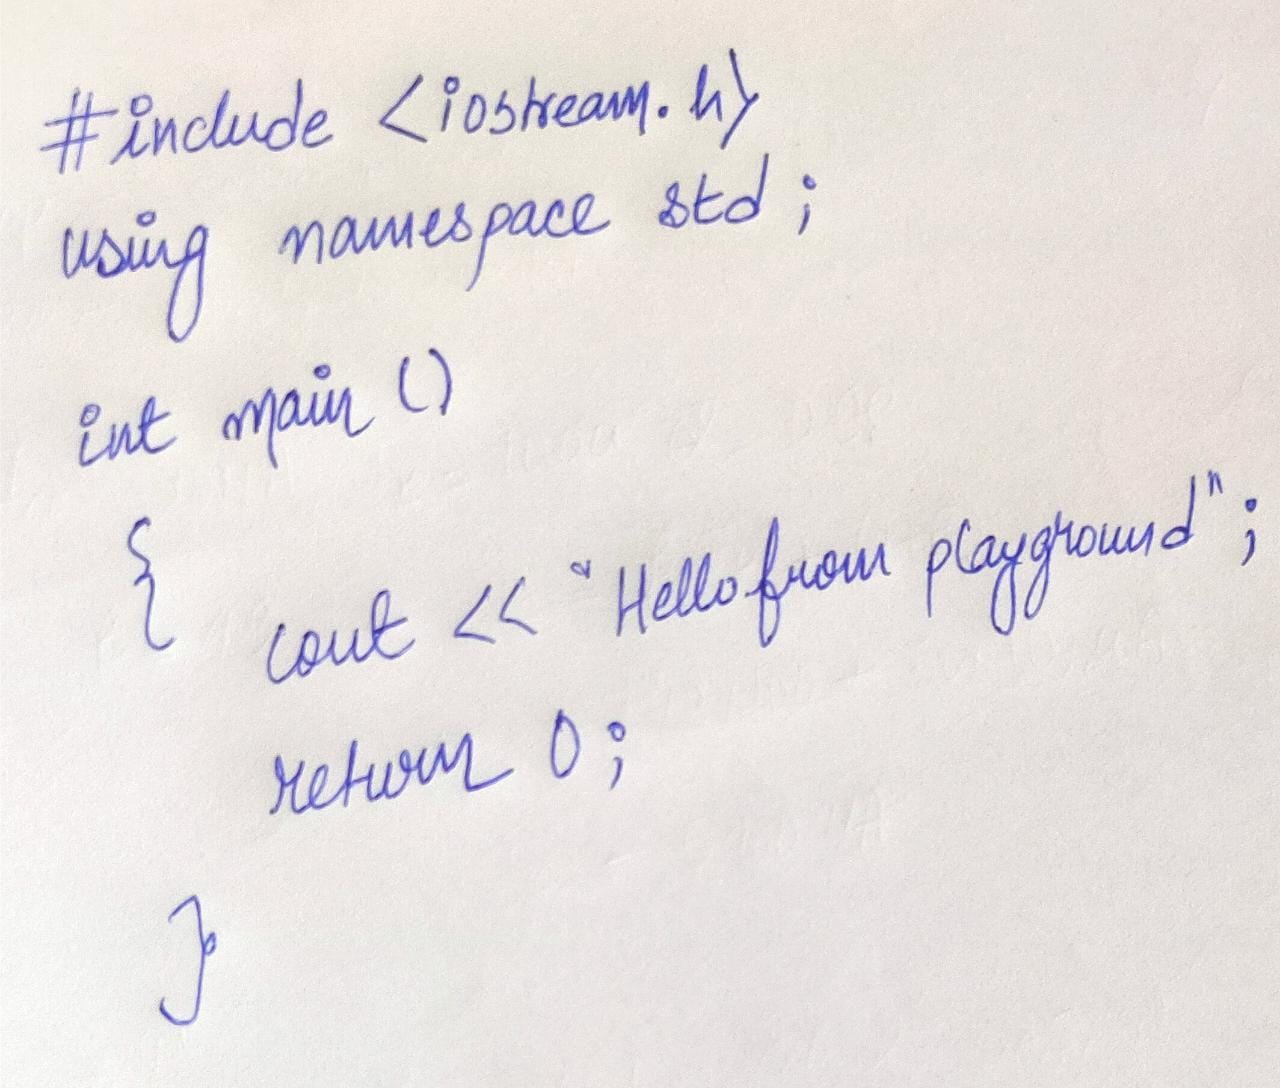 #include <iostream.h>
using namespace std;
int main ()
{
cout << "Hello from playground";
return 0;
}